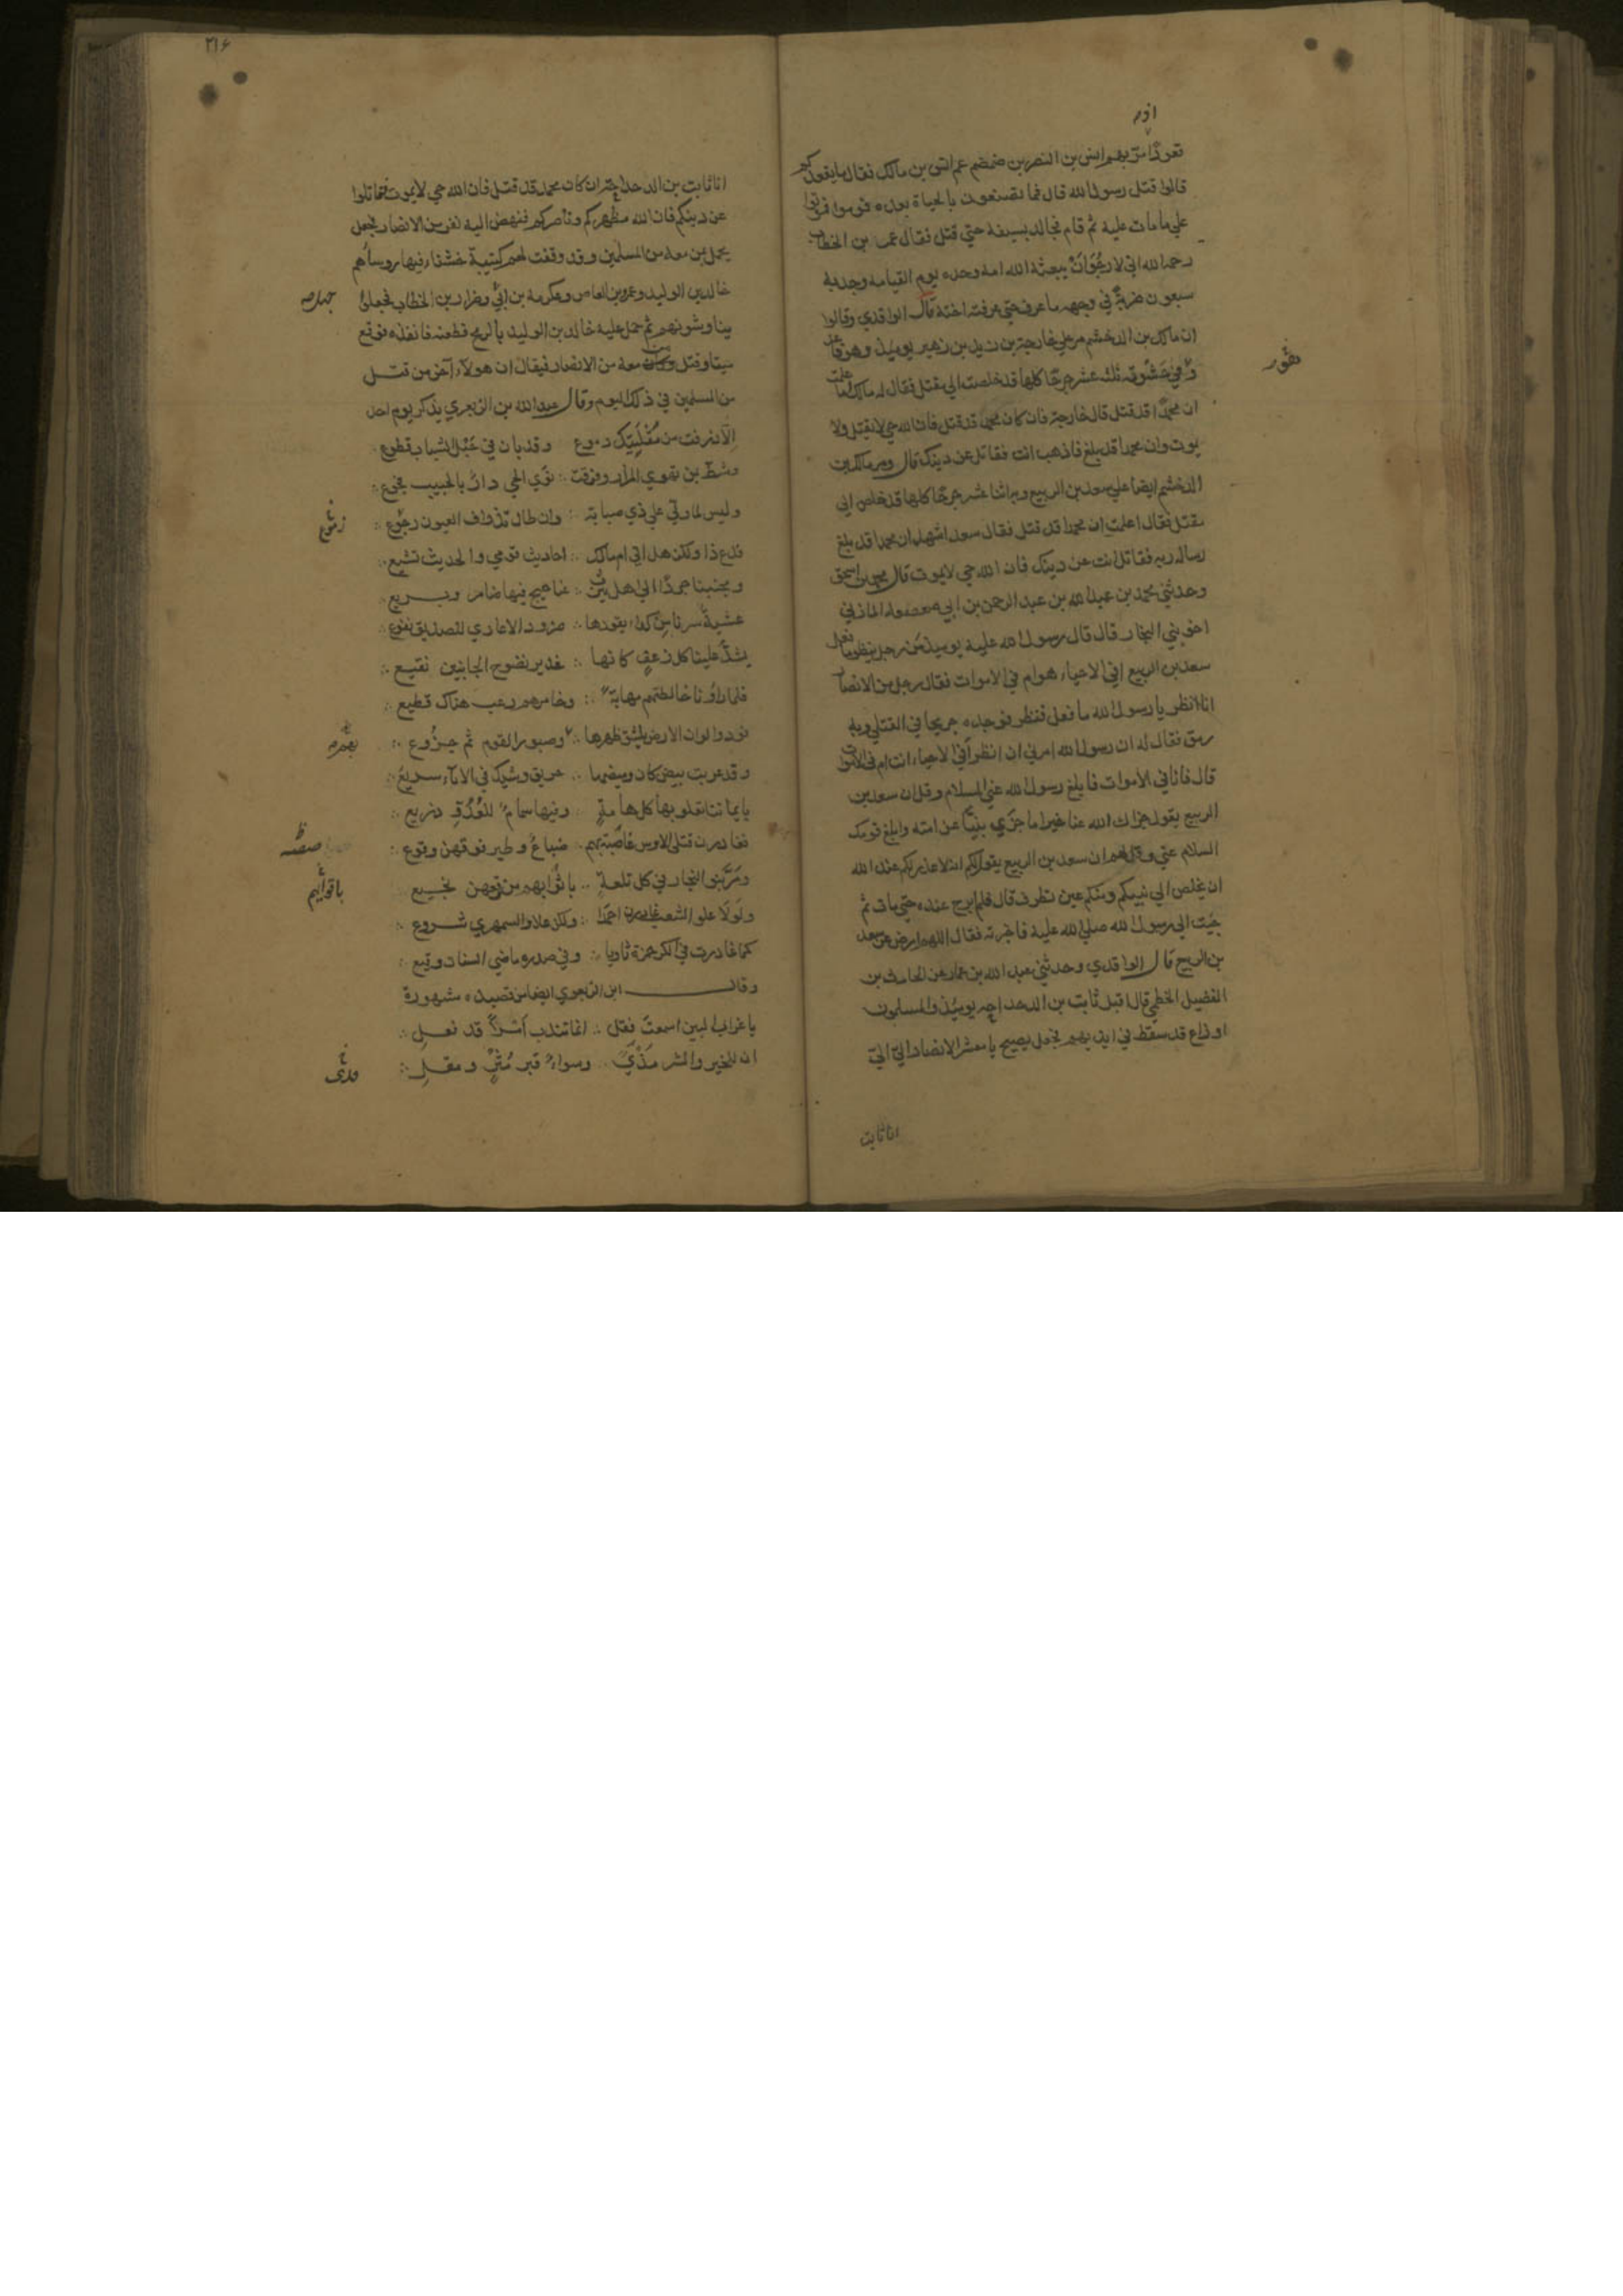 اذ مر
قعودًا مرّ بهم انس بن النضر بن ضمضم عم انس بن مالك فقال ما يقعدكم
قالوا قتل رسول الله قال فما تصنعون بالحياة بعده قوموا فموتوا
علي ما مات عليه ثم قام فجالد بسيفه حتي قتل فقال عمر بن الخطاب
رحمه الله اني لارجُوَانْ يبعثه الله امة وحده يوم القيامة وجد به
سبعون ضربةً في وجهه ما عرف حتي عرفته اخته قال الواقدي وقالوا
ان مالك بن الدخشم مر علي خارجة بن زيد بن زهير يوميذ وهو قاعد
وفي حشوته ثلث عشر جرحًا كلها قد خلصت الي مقتل فقال له مالك اما علمت
ان محمدًا قد قتل قال خارجة فان كان محمد قد قتل فان الله حي لا يقتل ولا
يموت وان محمدا قد بلغ فاذهب انت فقاتل عن دينك قال ومر مالك بن
الدخشم ايضا علي سعد بن الربيع وبه اثنا عشر جرحًا كلها قد خلص الي
مقتل فقال اعلمت ان محمدا قد قتل فقال سعد اشهد ان محمدا قد بلغ
رسالة ربه فقاتل انت عن دينك فان الله حي لا يموت قال محمد بن اسحق
وحدثني محمد بن عبد الله بن عبد الرحمن بن ابي صعصعه المازني
اخو بني النجار قال قال رسول الله عليه يوميذ مَن رجل ينظر ما فعل
سعد بن الربيع افي الاحياء هو ام في الاموات فقال رجل من الانصار
انا انظر يا رسول الله ما فعل فنظر فوجده جريحا في القتلي وبه
رمق فقال له ان رسول الله امرني ان انظر أفي الاحياء انت ام في الاموات
قال فانا في الاموات فابلغ رسول الله عني السلام وقل ان سعد بن
الربيع يقول جزاك الله عنا خيرا ما جزي نبيًّا عن امته وابلغ قومك
السلام عني وقل لهم ان سعد بن الربيع يقول لكم انه لا عذر لكم عند الله
ان يخلص الي نبيكم ومنكم عين تطرف قال فلم ابرح عنده حتي مات ثم
جيت الي رسول الله صلي الله عليه فاخبرته فقال اللهم ارض عن سعد
بن الربيع قال الواقدي وحدثني عبد الله بن عمار عن الحارث بن
الفضيل الخطمي قال اقبل ثابت بن الدحداحه يوميذ والمسلمون
اوزاع قد سقط في ايديهم فجعل يصيح يا معشر الانصار اليّ اليّ
انا ثابت
٣١٦
انا ثابت بن الدحداحة ان كان محمد قد قتل فان الله حي لا يموت فقاتلوا
عن دينكم فان الله مظهركم وناصركم فنهض اليه نفر من الانصار فجعل
يحمل بمن معه من المسلمين وقد وقفت لهم كتيبة خشناء فيها روساؤهم
خالد بن الوليد وعمرو بن العاص وعكرمة بن ابي وضرار بن الخطاب فجعلوا
يناوشونهم ثم حمل عليه خالد بن الوليد بالرمح فطعنه فانفذه فوقع
ميتا وقتل من كان معه من الانصار فيقال ان هولاء آخر من قتل
من المسلمين في ذلك اليوم وقال عبد الله بن الزبعري يذكر يوم احد
الا ذرفت من مُقْلَتَيْك دموع وقد بان في حَبْل الشباب قطوع
وشطّ بمن تهوي المزار وفرقت نوَي الحي دارٌ بالحبيب فجوع
وليس لما ولّي علي ذي صبابة وان طال تذراف العيون رجوع
فدع ذا ولكن هل اتي ام مالك احاديث قومي والحديث تشيع
ومجنبنا جردًا الي اهل يثرب عناجيج فيها ضامر وبريع
عشيةَ سرنا من كداء يقودها ضرور الاعادي للصديق نفوع
يشدّ علينا كل زعفٍ كانها غدير نضوج الجانبين نقيع
فلما راونا خالطتهم مهابةٌ وخامرهم رعب هناك قطيع
فودوا لو ان الارض ينشق ظهرها وصبور القوم ثم جزُوع
وقد عريت بيض كان وميضها حريق وشيك في الاباء سريع
بايماننا نعلو بها كل هامةٍ وفيها سمامٌ للعُدُوِّ ذريع
فغادرن قتلي الاوس عاصبة بهم ضباعٌ وطير فوقهن وقوع
ومَرَّ بنو النجار في كل تلعةٍ باثوابهم من وقعهن نجيع
ولَولَا علو الشعب غادرن احمدا ولكن علا والسمهري شروع
كما غادرت في الكر حمزة ثاويا وفي صدره ماضي السنان وقيع
وقال ابن الزبعري ايضا من قصيده مشهورة
يا غراب البين اسمعتَ فقل انما تندب أَمْرًا قد فعل
ان للخير والشر مَدًي وسواءٌ قبر مُثْرٍ ومقل